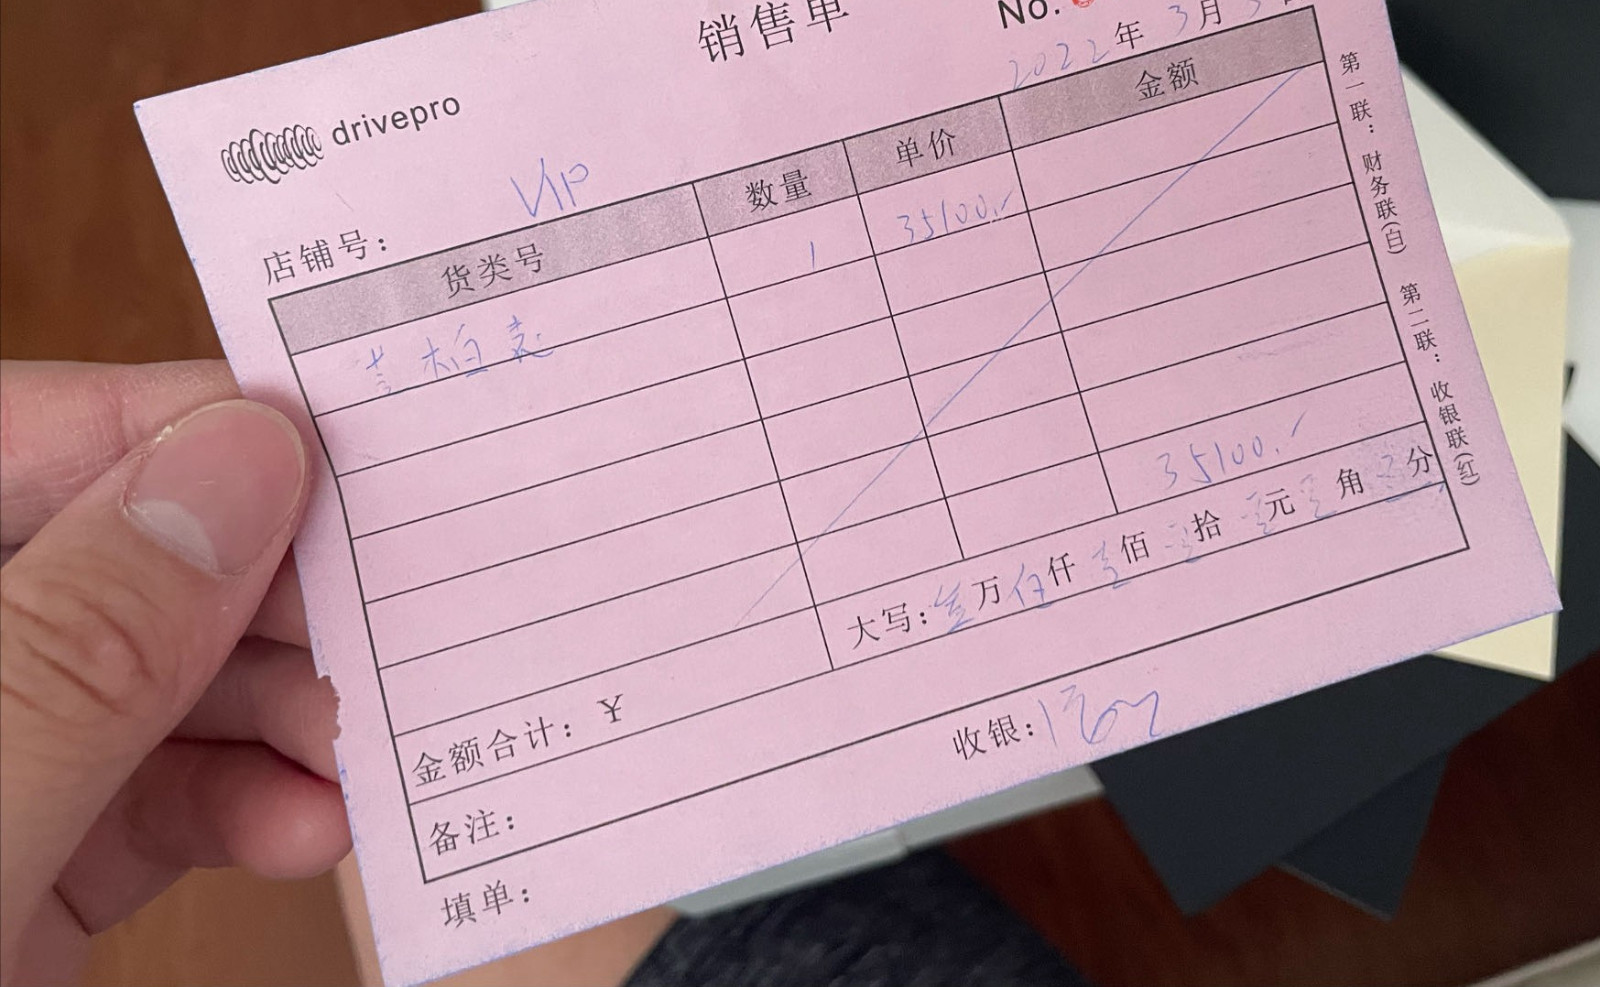 销售单
No.
2022年3月
drivepro
VIP
店铺号：
货类号 数量 单价 金额
芝柏表 1 35100.-
35100.-
金额合计：¥ 大写：叁万伍仟壹佰零拾零元零角零分
备注：
填单： 收银：
第一联：财务联(白) 第二联：收银联(红)